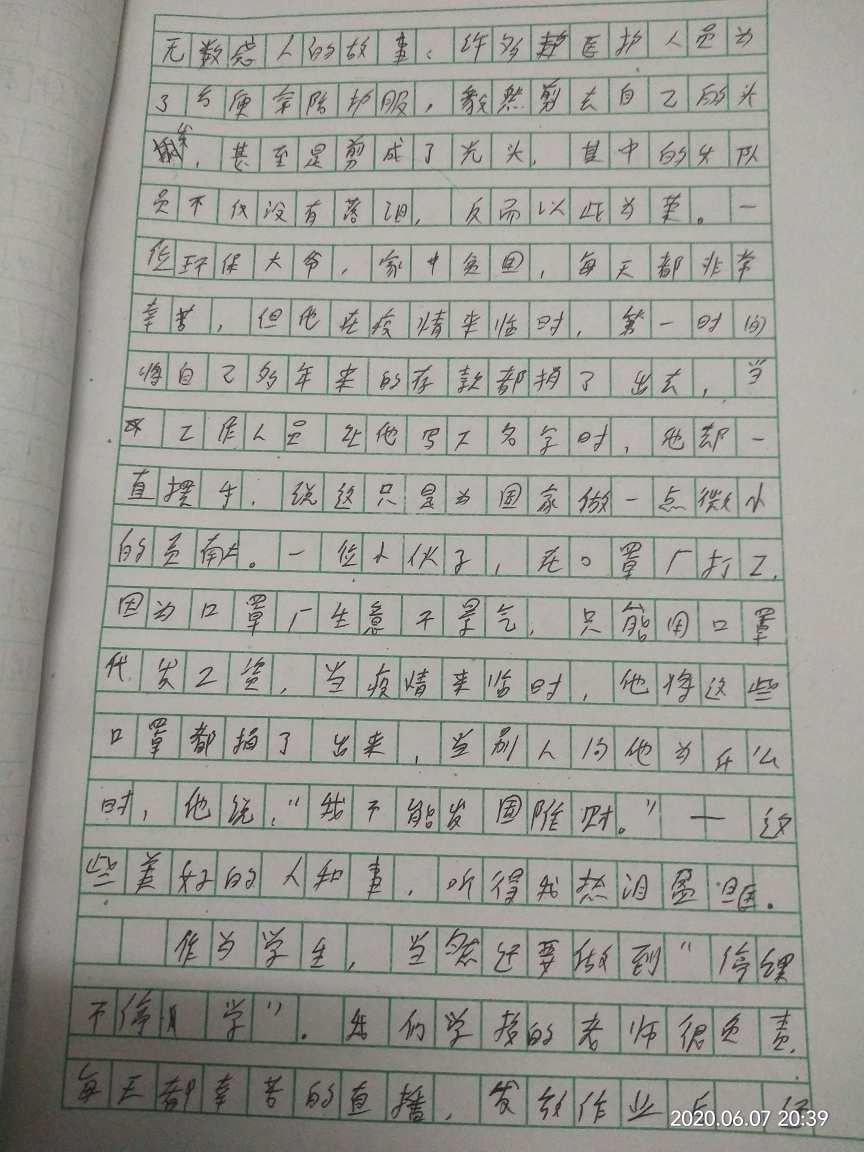 无数感人的故事、许多医护人员为
了方便穿防护服，毅然剪去自己的头
发，甚至是剪成了光头，其中的女队
员不仅没有落泪，反而以此为荣。一
位环保大爷，家中贫困，每天都非常
辛苦，但他在疫情来临时，第一时间
将自己多年来的存款都捐了出去，当
工作人员让他写下名字时，他却一
直摆手，说这只是为国家做一点微小
的贡献。一位小伙子，在口罩厂打工，
因为口罩厂生意不景气，只能用口罩
代发工资，当疫情来临时，他将这些
口罩都捐了出来，当别人问他为什么
时，他说，“我不能发国难财。”一这
些美好的人和事，听得我热泪盈眶。
作为学生，当然还要做到“停课
不停学”。我们学校的老师很负责，
每天都辛苦的直播，发放作业后，
2020.06.07 20:39